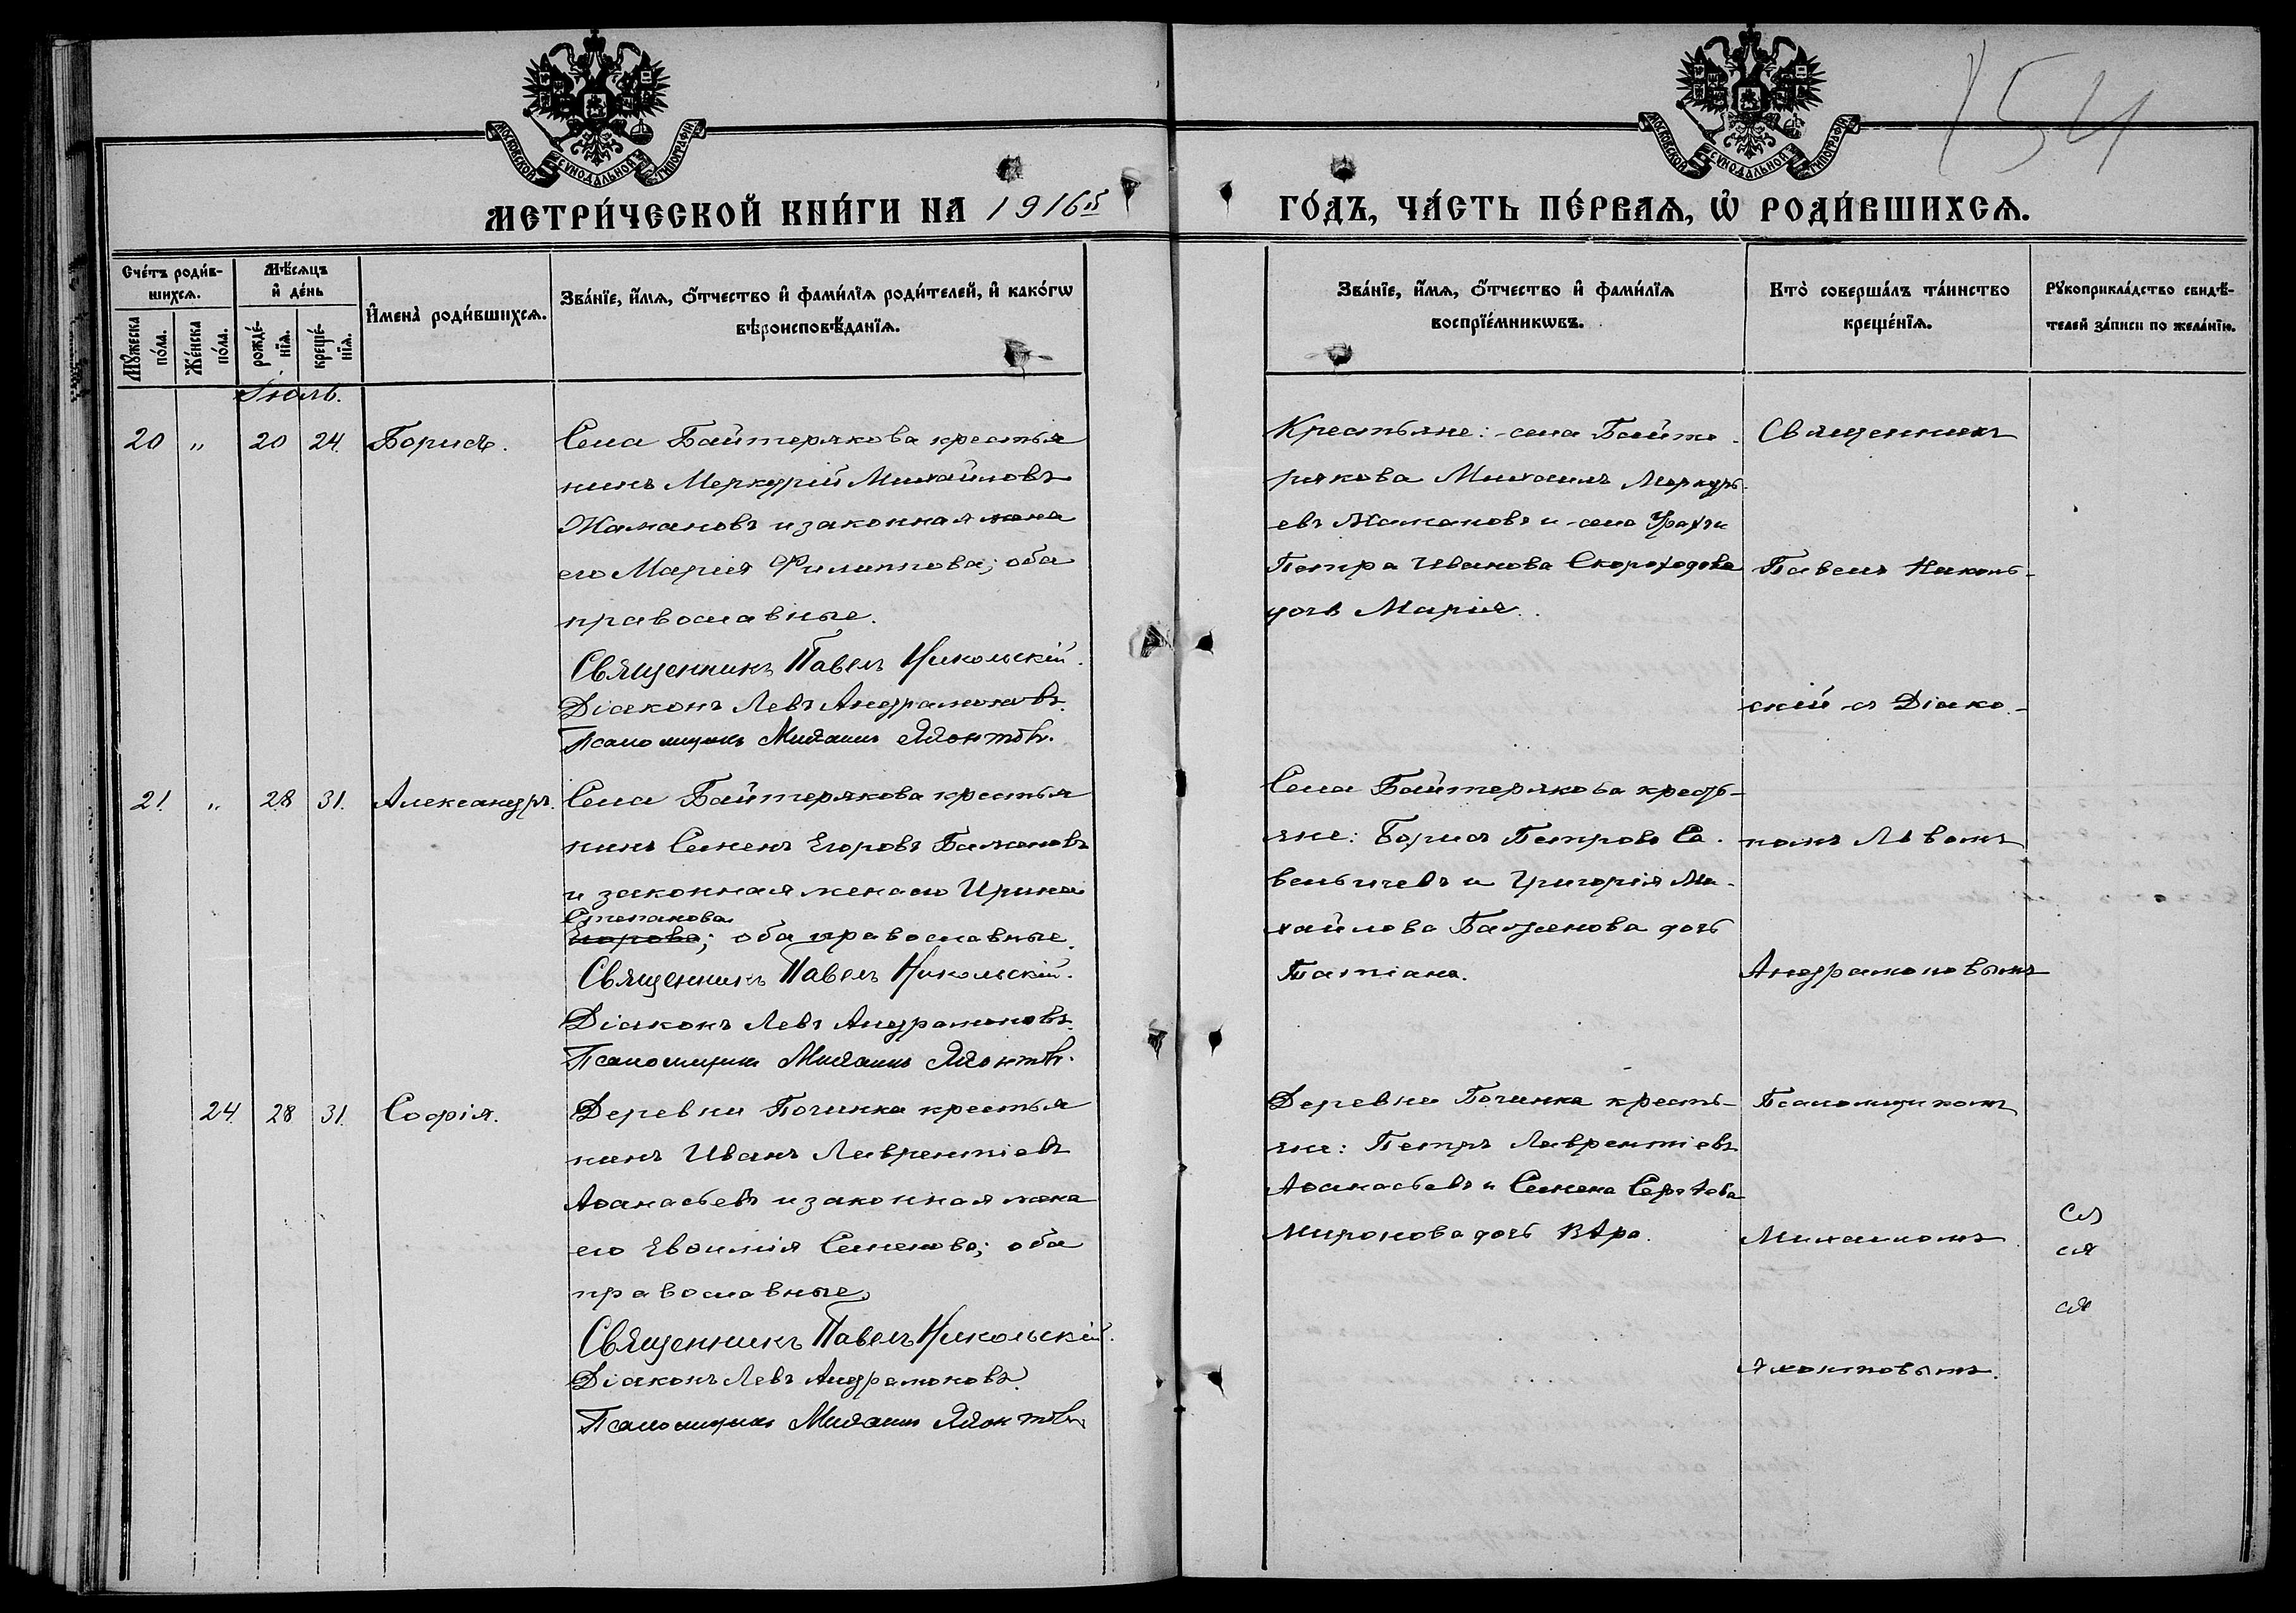 МОСКОВСКОЙ СѴНОДАЛЬНОЙ ТИПОГРАФІИ
МОСКОВСКОЙ СѴНОДАЛЬНОЙ ТИПОГРАФІИ
154
МЕТРИ́ЧЕСКОЙ КНИ́ГИ НА 1916й
ГО́ДЪ, ЧА́СТЬ ПЕ́РВАѦ, Ѡ҆ РОДИ́ВШИХСѦ.
Сче́тъ роди́в-
шихсѧ.
Мꙋ́жеска по́ла.
Же́нска по́ла.
Мѣ́сѧцъ
и҆ де́нь
рожде́-нїѧ.
креще́-нїѧ.
И҆мена̀ роди́вшихсѧ.
Зва́нїе, и҆́мѧ, ѻ҆́тчество и҆ фами́лїѧ роди́телей, и҆ како́гѡ
вѣроисповѣ́данїѧ.
Зва́нїе, и҆́мѧ, ѻ҆́тчество и҆ фами́лїѧ
воспрїе́мникѡвъ.
Кто̀ соверша́лъ та́инство
креще́нїѧ.
Рꙋкоприкла́дство свидѣ́-
телей за́писи по жела́нїю.
Іюль.
20 " 20 24. Борисъ.
Села Байтерякова крестья
нинъ Меркурій Михайловъ
Жамановъ и законная жена
его Марія Филиппова; оба
православные.
Священникъ Павелъ Никольскій.
Діаконъ Левъ Андрамоновъ.
Псаломщикъ Михаилъ Ямонтовъ.
Крестьяне: села Байте-
рякова Михаилъ Меркурь-
евъ Жамановъ и села Урахчи
Петра Иванова Скороходова
дочь Марія.
Священникъ
Павелъ Николь-
скій съ Діако-
21. " 28 31. Александръ.
Села Байтерякова крестья
нинъ Семенъ Егоровъ Баженовъ
и законная жена его Ирина
Степанова
Егорова; оба православные.
Священникъ Павелъ Никольскій.
Діаконъ Левъ Андрамоновъ.
Псаломщикъ Михаилъ Ямонтовъ.
Села Байтерякова кресть-
яне: Борисъ Петровъ Са-
вельичевъ и Григорія Ми-
хайлова Баженова дочь
Татіана.
номъ Львомъ
Андрамоновымъ
24. 28 31. Софія.
Деревни Починка крестья
нинъ Иванъ Лаврентіевъ
Аѳанасьевъ и законная жена
его Евѳимія Семенова; оба
православные.
Священникъ Павелъ Никольскій.
Діаконъ Левъ Андрамоновъ.
Псаломщикъ Михаилъ Ямонтовъ.
Деревни Починка кресть-
яне: Петръ Лаврентіевъ
Аѳанасьевъ и Семена Сергѣева
Миронова дочь Вѣра.
Псаломщикомъ
Михаиломъ
Ямонтовымъ.
ся
ся
ся